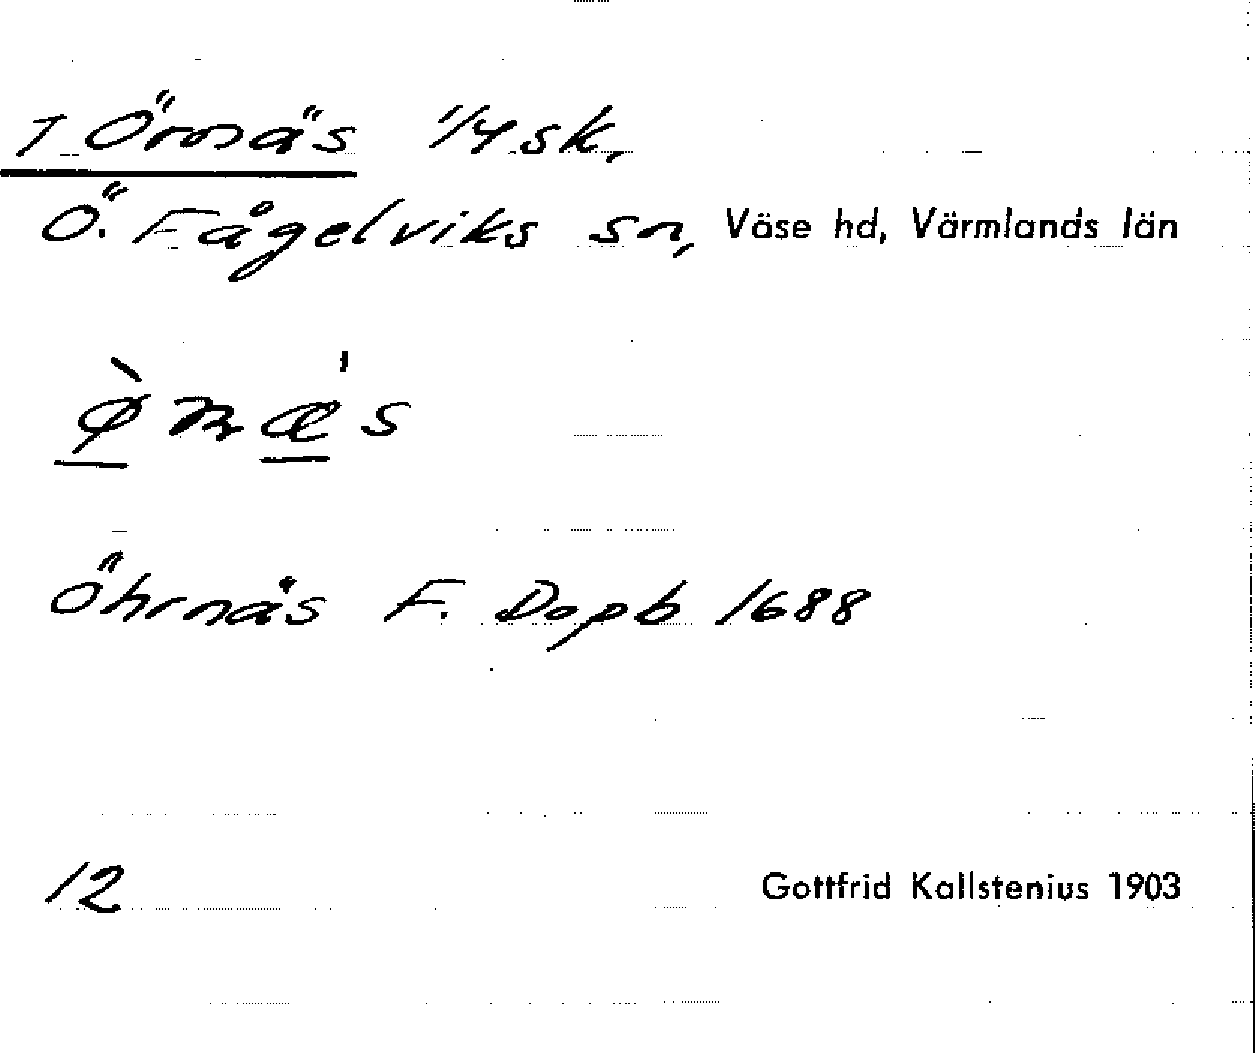 T Örnäs 1/4 sk,
Ö. Fågelviks sn, Väse hd, Värmlands län
ø̀næ's
Öhrnäs F. Dopb 1688
12
Gottfrid Kallstenius 1903